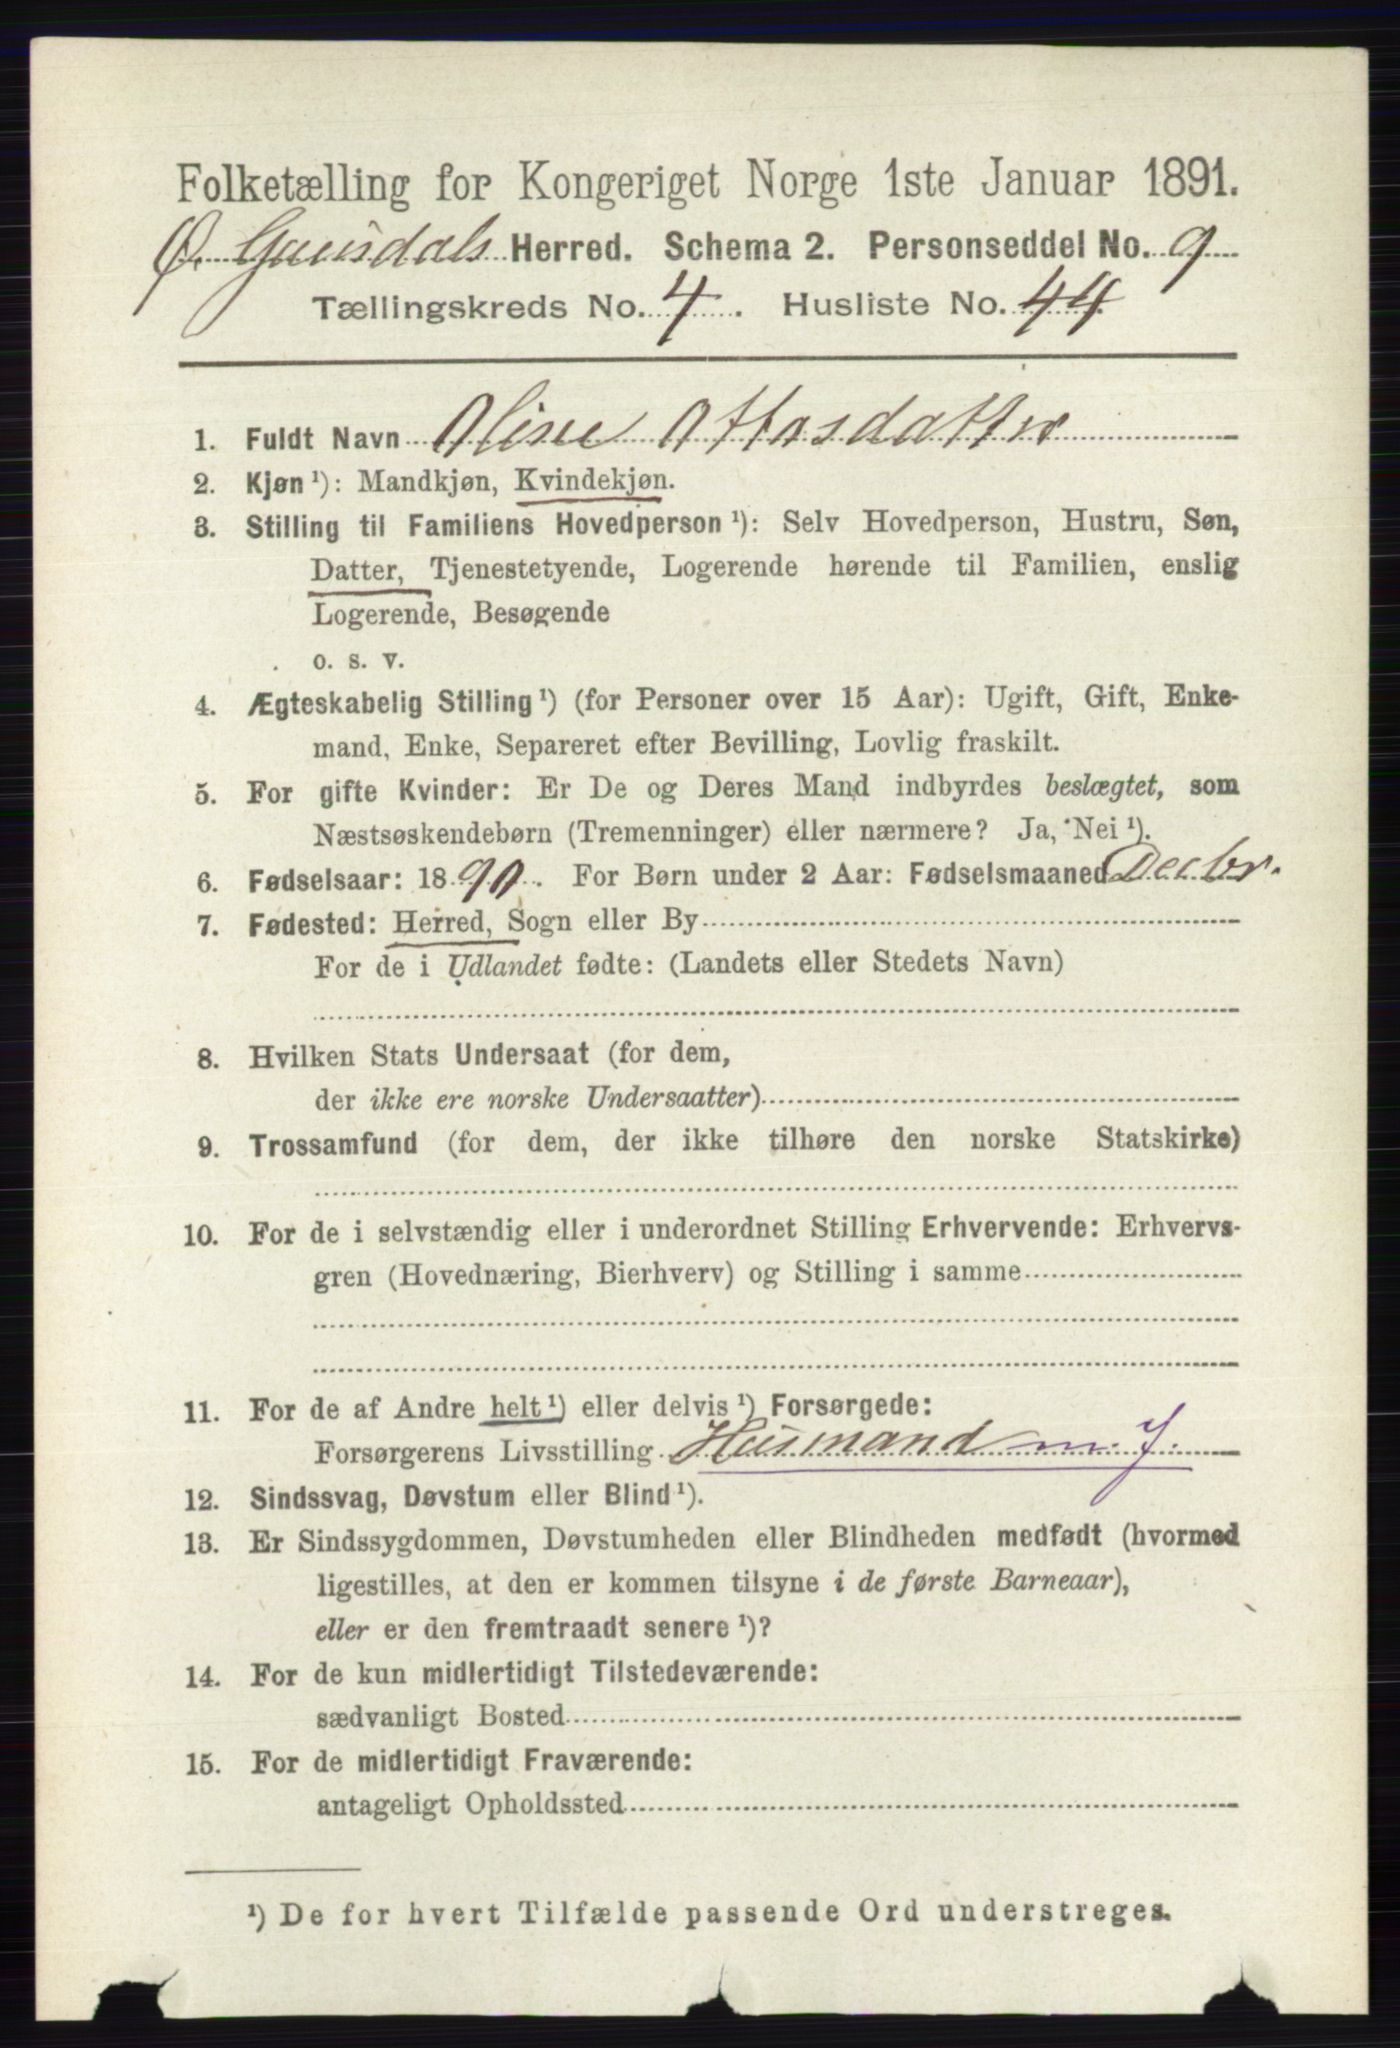 Folketælling for Kongeriget Norge 1ste Januar 1891.
Ø. Gausdals Herred. Schema 2. Personseddel No. 9
Tællingskreds No. 4. Husliste No. 44.
1. Fuldt Navn Oline Ottosdatter
2. Kjøn ¹): Mandkjøn, Kvindekjøn.
3. Stilling til Familiens Hovedperson ¹): Selv Hovedperson, Hustru, Søn,
Datter, Tjenestetyende, Logerende hørende til Familien, enslig
Logerende, Besøgende
o. s. v.
4. Ægteskabelig Stilling ¹) (for Personer over 15 Aar): Ugift, Gift, Enke-
mand, Enke, Separeret efter Bevilling, Lovlig fraskilt.
5. For gifte Kvinder: Er De og Deres Mand indbyrdes beslægtet, som
Næstsøskendebørn (Tremenninger) eller nærmere? Ja, Nei ¹).
6. Fødselsaar: 1890. For Børn under 2 Aar: Fødselsmaaned Decbr.
7. Fødested: Herred, Sogn eller By
For de i Udlandet fødte: (Landets eller Stedets Navn)
8. Hvilken Stats Undersaat (for dem,
der ikke ere norske Undersaatter)
9. Trossamfund (for dem, der ikke tilhøre den norske Statskirke)
10. For de i selvstændig eller i underordnet Stilling Erhvervende: Erhvervs-
gren (Hovednæring, Bierhverv) og Stilling i samme
11. For de af Andre helt ¹) eller delvis ¹) Forsørgede:
Forsørgerens Livsstilling Husmand m. J.
12. Sindssvag, Døvstum eller Blind ¹).
13. Er Sindssygdommen, Døvstumheden eller Blindheden medfødt (hvormed
ligestilles, at den er kommen tilsyne i de første Barneaar),
eller er den fremtraadt senere ¹)?
14. For de kun midlertidigt Tilstedeværende:
sædvanligt Bosted
15. For de midlertidigt Fraværende:
antageligt Opholdssted
¹) De for hvert Tilfælde passende Ord understreges.